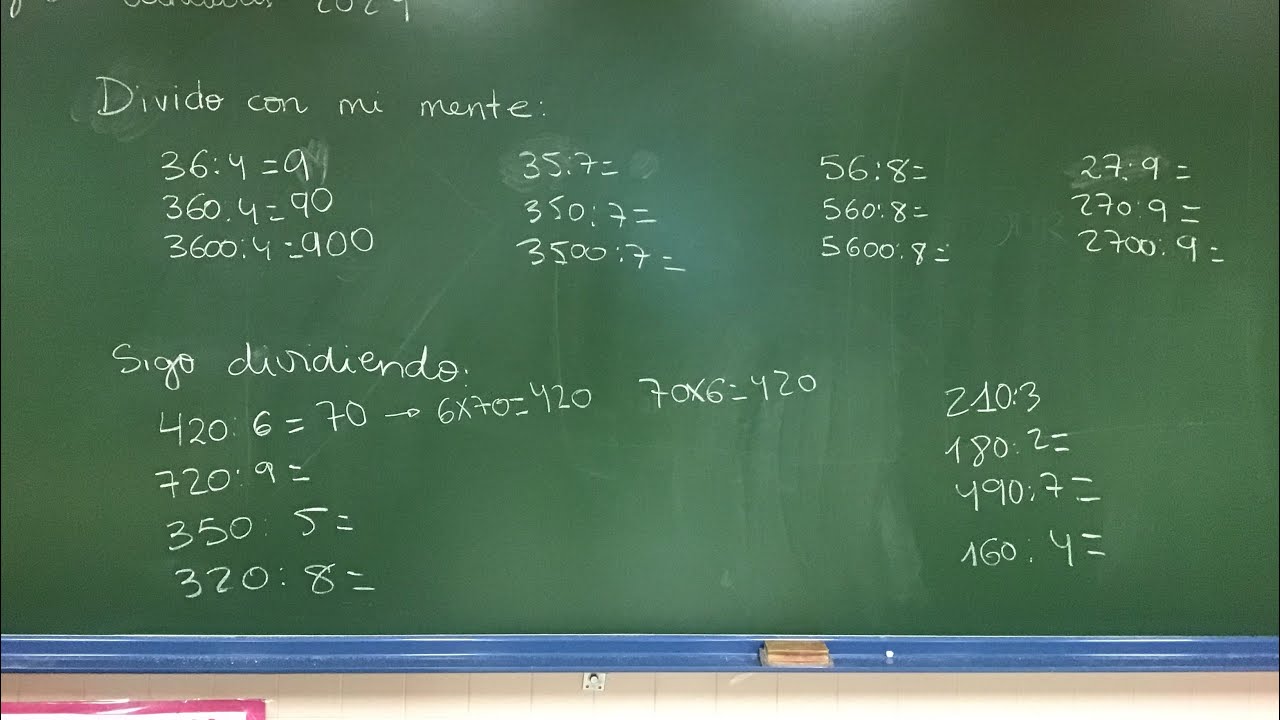 2024
Divido con mi mente:
36:4=9
360:4=90
3600:4=900
35:7=
350:7=
3500:7=
56:8=
560:8=
5600:8=
27:9=
270:9=
2700:9=
Sigo dividiendo:
420:6=70→6x70=420 70x6=420
720:9=
350:5=
320:8=
210:3
180:2=
490:7=
160:4=